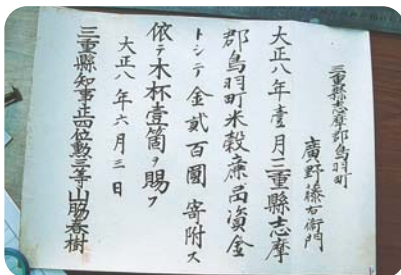 三重縣志摩郡鳥羽町
廣野藤右衛門
大正八年壹月三重縣志摩
郡鳥羽町米穀廉賣資金
トシテ金貳百圓寄附ス
依テ木杯壹箇ヲ賜フ
大正八年六月三日
三重縣知事正四位勳三等山脇春樹